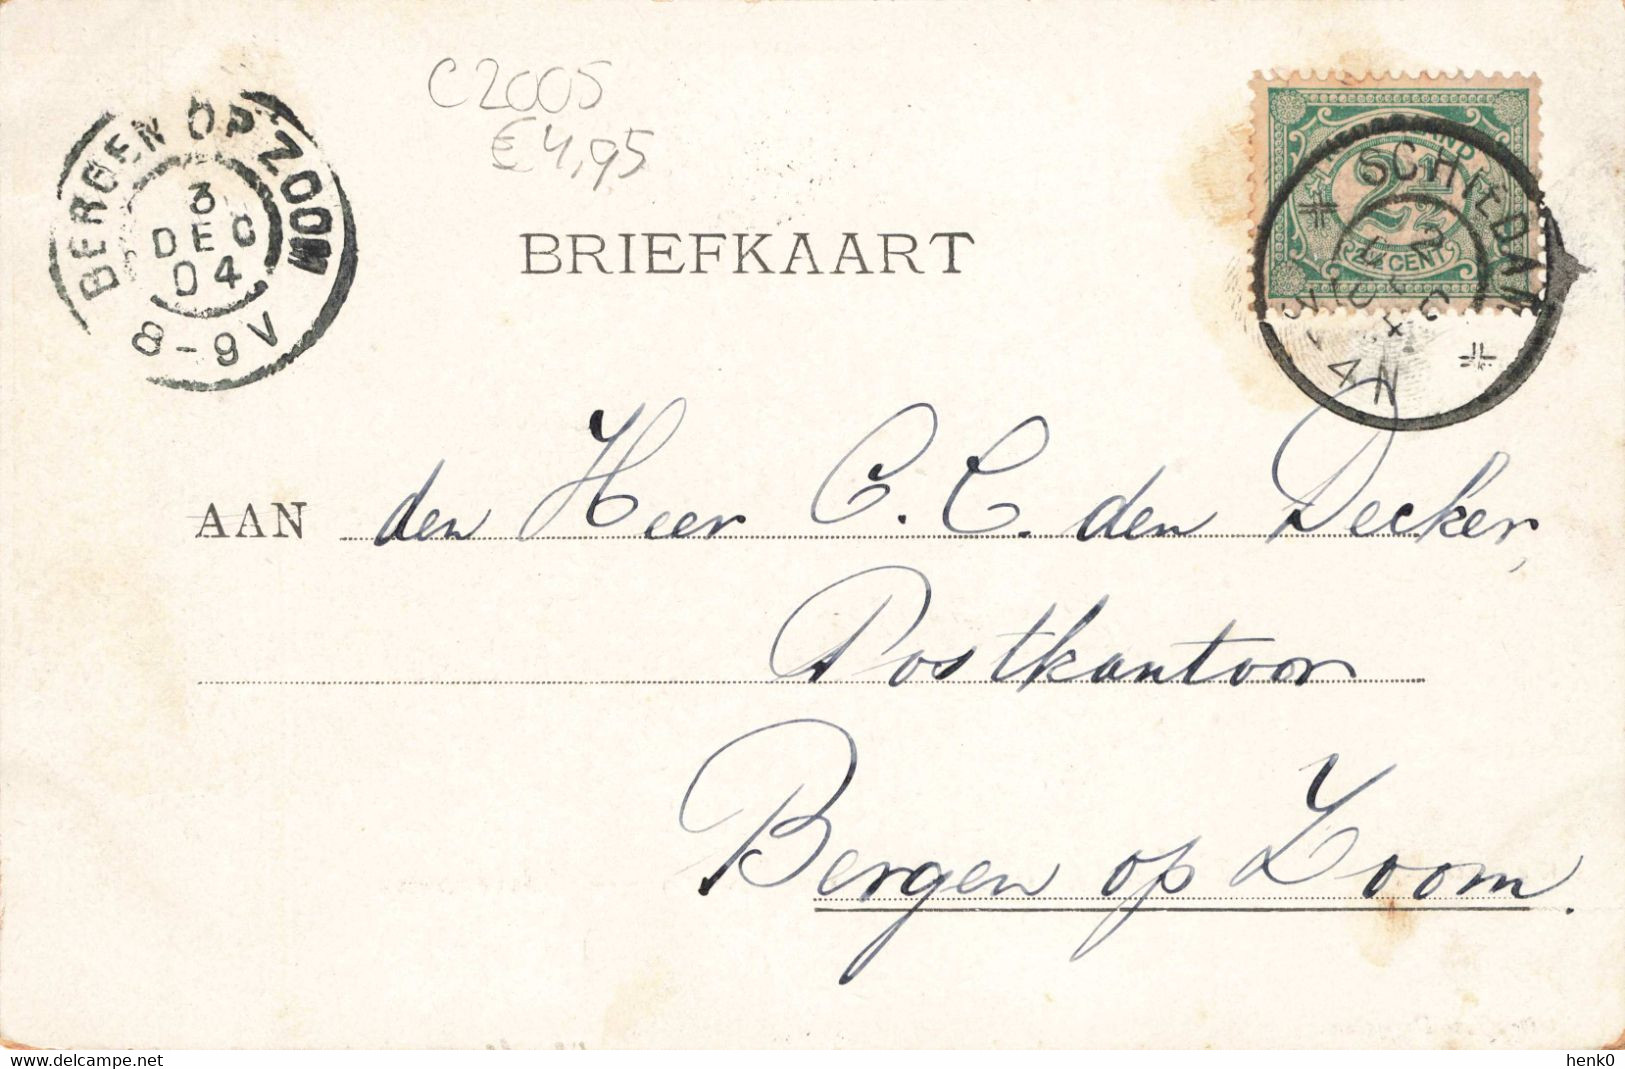 C2005
€4,95
BERGEN OP ZOOM
3
DEC
04
8-9V
NEDERLAND
2½
2½ CENT
SCHIEDAM
BRIEFKAART
AAN den Heer C. C. den Decker,
Postkantoor
Bergen op Zoom.
www.delcampe.net
henk0